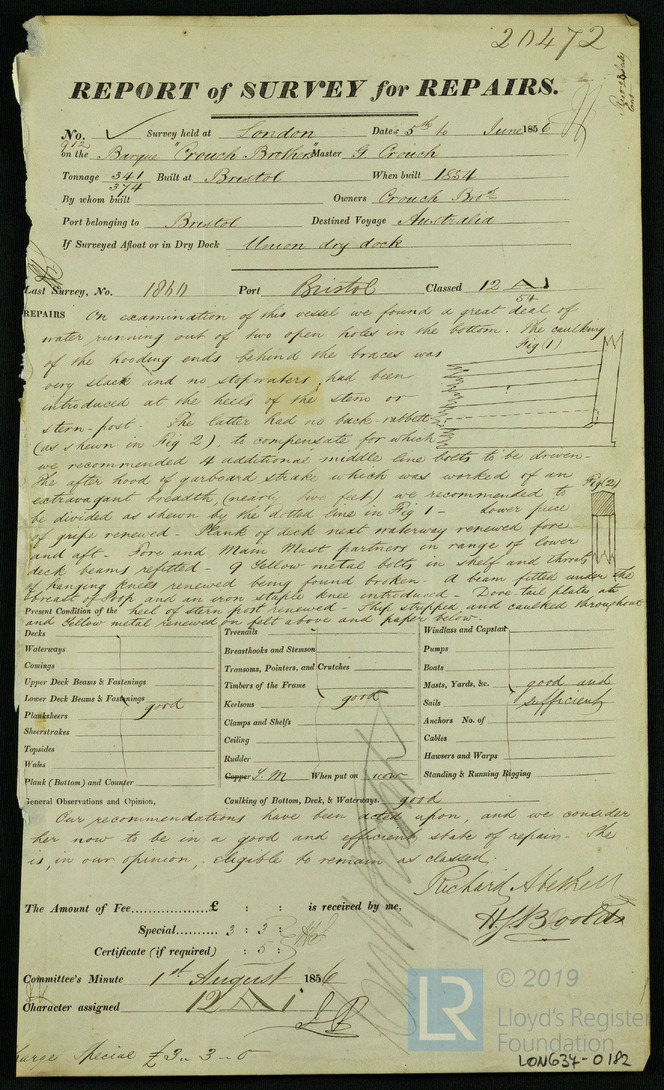 20472
REPORT of SURVEY for REPAIRS.
No. Survey held at London Date 5th to June 1856
912
on the Barque "Crouch Brothers" Master G. Crouch
Tonnage 341 Built at Bristol When built 1854
374
By whom built Owners Crouch Bros
Port belonging to Bristol Destined Voyage Australia
If Surveyed Afloat or in Dry Dock Union dry dock
Last Survey, No. 1860 Port Bristol Classed 12 A 1
54
REPAIRS On examination of this vessel we found a great deal of
water running out of two open holes in the bottom. The caulking
of the hooding ends behind the braces was
Fig (1)
very slack and no stopwaters had been
introduced at the heels of the stem or
stern-post. The latter had no back-rabbett
(as shewn in Fig 2), to compensate for which
we recommended 4 additional middle line bolts to be driven-
The after hood of garboard strake which was worked of an
Fig (2)
extravagant breadth, (nearly two feet) we recommended to
be divided as shewn by the dotted line in Fig 1 - Lower piece
of gripe renewed - Plank of deck next waterway renewed fore
and aft - Fore and Main Mast partners in range of lower
deck beams refitted - 9 Yellow metal bolts in shelf and throats
of hanging knees renewed being found broken. A beam fitted under the
breast of Poop and an iron staple knee introduced - Dove-tail plates at
Present Condition of the heel of stern post renewed - Ship stripped and caulked throughout
and Yellow metal renewed on felt above and paper below.
Decks
Waterways
Comings
Upper Deck Beams & Fastenings
Lower Deck Beams & Fastenings
good
Planksheers
Sheerstrakes
Topsides
Wales
Plank (Bottom) and Counter
Treenails
Breasthooks and Stemson
Transoms, Pointers, and Crutches
Timbers of the Frame
good
Keelsons
Clamps and Shelfs
Ceiling
Rudder
Copper Y. M When put on now
Caulking of Bottom, Deck, & Waterways. good
Windlass and Capstan
Pumps
Boats
Masts, Yards, &c. good and
Sails sufficient
Anchors No. of
Cables
Hawsers and Warps
Standing & Running Rigging
General Observations and Opinion,
Our recommendations have been acted upon, and we consider
her now to be in a good and efficient state of repair - She
is, in our opinion, eligible to remain as classed.
Richard Abethell
The Amount of Fee £ : : is received by me,
Special 3 : 3 :
Certificate (if required) : 5 :
Committee's Minute 1st August 1856
Character assigned 12 A 1
Special £3 - 3 - 0
© 2019
LR
Lloyd's Register
Foundation
LON637-0182